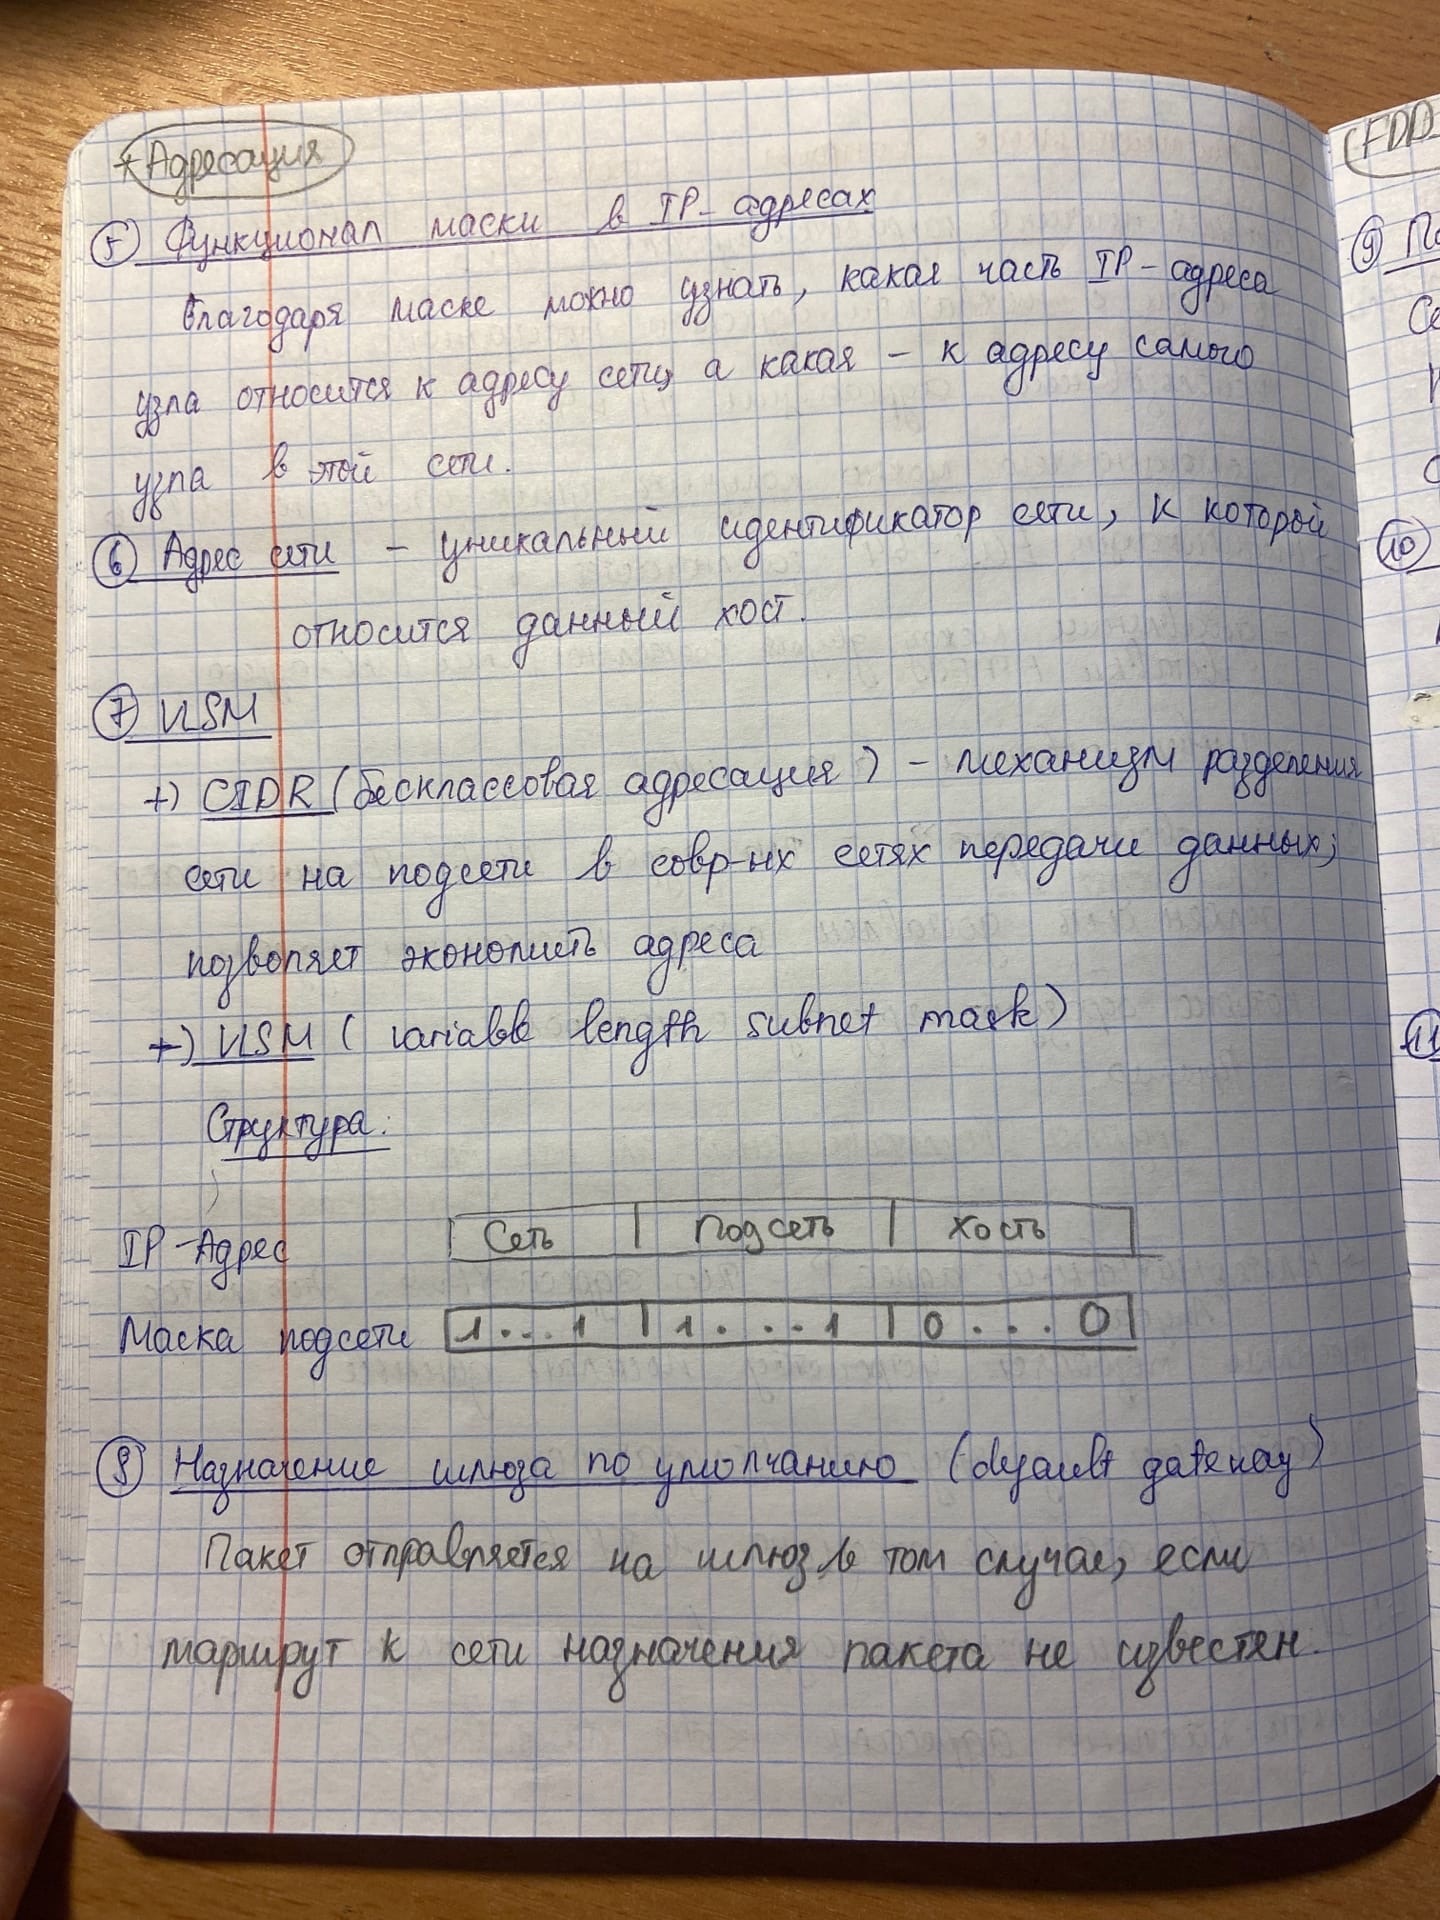 * Адресация
5) Функционал маски в IP-адресах
Благодаря маске можно узнать, какая часть IP-адреса
узла относится к адресу сети, а какая – к адресу самого
узла в этой сети.
6) Адрес сети – уникальный идентификатор сети, к которой
относится данный хост.
7) VLSM
+) CIDR (бесклассовая адресация) – механизм разделения
сети на подсети в совр-ых сетях передачи данных;
позволяет экономить адреса
+) VLSM (variable length subnet mask)
Структура:
IP-Адрес Сеть | Подсеть | Хость
Маска подсети 1...1 | 1...1 | 0...0
8) Назначение шлюза по умолчанию (default gateway)
Пакет отправляется на шлюз в том случае, если
маршрут к сети назначения пакета не известен.
(FDD
9)
10)
11)